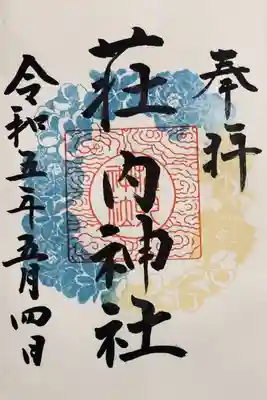 奉拝
荘内神社
令和五年五月四日